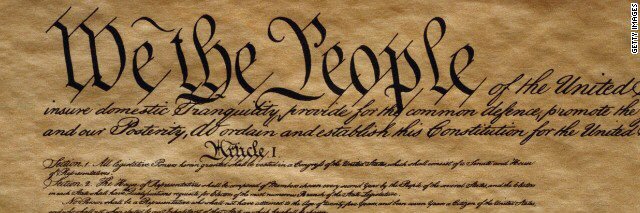 We the People of the United
insure domestic Tranquility, provide for the common defence, promote the
and our Posterity, do ordain and establish this Constitution for the United
Article I
Section 1. All legislative Powers herein granted shall be vested in a Congress of the United States, which shall consist of a Senate and House
of Representatives.
Section 2. The House of Representatives shall be composed of Members chosen every second Year by the People of the several States, and the Electors
in each State shall have
No Person shall be a Representative who shall not have attained to the Age of twenty five Years, and been seven Years a Citizen of the United States,
GETTY IMAGES